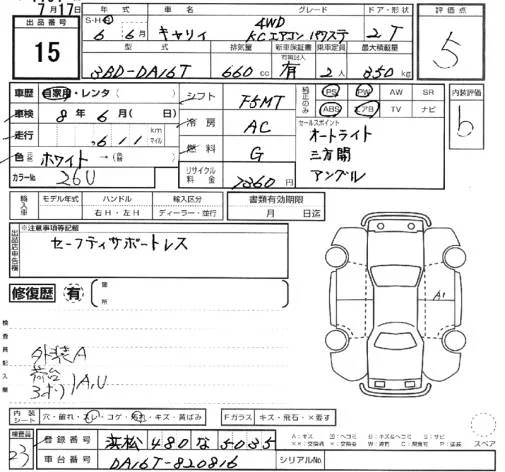 7月17日
出品番号
15
年式 車名 グレード ドア・形状
S・H・R 6年 6月 キャリイ 4WD KCエアコン パワステ 2 T
型式 排気量 新車保証書 有無回入 乗車定員 最大積載量
3BD-DA16T 660cc 有 2人 350kg
評価点
5
車歴 自家用・レンタ( )
車検 8年6月( 日)
走行 ,611 km マイル
色 ホワイト →( )
カラーNo. 26U
シフト F5MT
冷房 AC
燃料 G
リサイクル料金 7860円
純正のみ
PS PW AW SR
ABS エアB TV ナビ
セールスポイント
オートライト
三方開
アングル
内装評価
b
輸入車 モデル年式 ハンドル 輸入区分
右H・左H ディーラー・並行
書類有効期限
月 日迄
出品店申告欄
※注意事項等記載
セーフティサポートレス
修復歴 有 箇所
検査員記入欄
外装A
荷台
3オリ
A,U
A1
内装シート 穴・破れ・スレ・コゲ・汚れ・キズ・黄ばみ
Fガラス キズ・飛石・×要す
A:キズ U:ヘコミ B:キズ&ヘコミ S:サビ
スペア
検査員
23
登録番号 浜松480な5035
車台番号 DA16T-820816
シリアルNo.